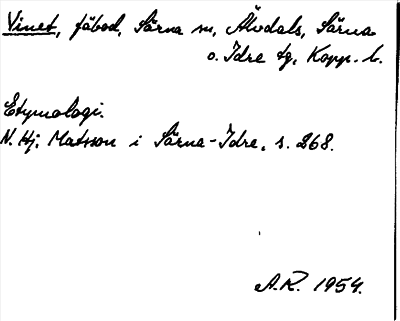 Vinet, fäbod, Särna sn, Älvdals, Särna
o. Idre tg, Kopp. l.
Etymologi.
N. Hj. Matsson i Särna-Idre, s. 268.
A.R. 1954.